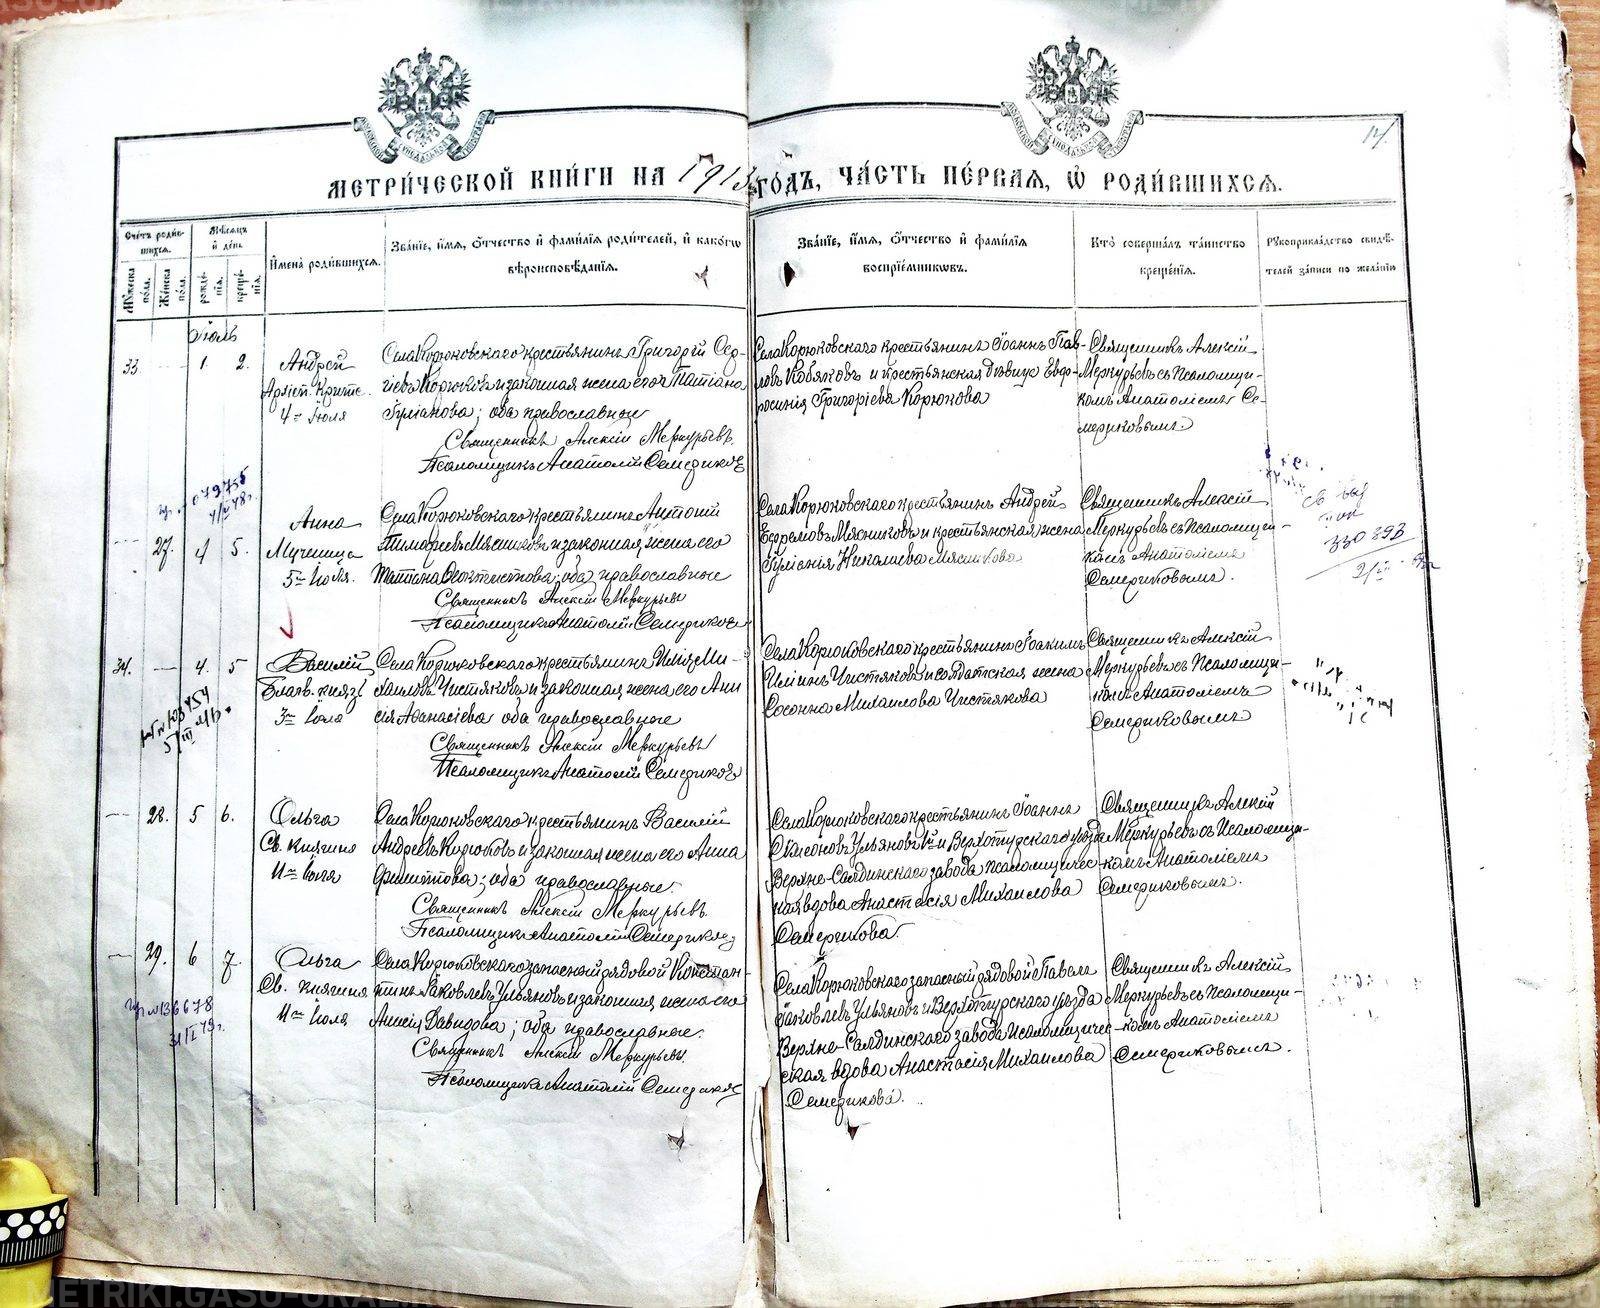 METRIKI.GASU-URAL.RU
14.
МЕТРИ́ЧЕСКОЙ КНИ́ГИ НА 1913 ГО́ДЪ, ЧА́СТЬ ПЕ́РВАЯ, Ѽ РОДИ́ВШИХСЯ.
Счетъ роди́вшихся.
Му́жеска по́ла.
Же́нска по́ла.
Мѣ́сяцъ и҆ де́нь
рожде́нія.
креще́нія.
И҆мена̀ роди́вшихся.
Зва́ніе, и҆́мя, о҆́тчество и҆ фами́лія роди́телей, и҆ како́гѡ
вѣроисповѣ́данія.
Зва́ніе, и҆́мя, о҆́тчество и҆ фами́лія
воспріе́мниковъ.
Кто̀ соверша́лъ та́инство
креще́нія.
Рꙋкоприкла́дство свидѣ́телей за́писи по жела́нію
Іюль
33. — 1. 2.
Андрей
Архіеп. Критс.
4го Іюля
Села Корюковскаго крестьянинъ Григорій Сер-
гіевъ Корюковъ и законная жена его Татіана
Іуліанова; оба православные
Священникъ Алексій Меркурьевъ.
Псаломщикъ Анатолій Семериковъ
Села Корюковскаго крестьянинъ Іоаннъ Пав-
ловъ Кобяковъ и крестьянская дѣвица Евф-
росинія Григоріева Корюкова
Священникъ Алексій
Меркурьевъ съ Псаломщи-
комъ Анатоліемъ Се-
мериковымъ.
— 27. 4 5.
Анна
Мученица
5го Іюля.
Села Корюковскаго крестьянинъ Антоній
Тимофеевъ Мясниковъ и законная жена его
Татіана Феоктистова; оба православные
Священникъ Алексій Меркурьевъ
Псаломщикъ Анатолій Семериковъ
Села Корюковскаго крестьянинъ Андрей
Ефремовъ Мясниковъ и крестьянская жена
Іуліанія Николаева Мясникова
Священникъ Алексій
Меркурьевъ съ Псаломщи-
комъ Анатоліемъ
Семериковымъ.
330893
34. — 4. 5
Василій
Благов. князь
3го Іюля
Села Корюковскаго крестьянинъ Илія Ми-
хаиловъ Чистяковъ и законная жена его Ани
сія Афанасіева оба православные
Священникъ Алексій Меркурьевъ
Псаломщикъ Анатолій Семериковъ
Села Корюковскаго крестьянинъ Іоакимъ
Илиинъ Чистяковъ и солдатская жена
Сосанна Михаилова Чистякова
Священникъ Алексій
Меркурьевъ съ Псаломщи-
комъ Анатоліемъ
Семериковымъ
— 28. 5 6.
Ольга
Св. княгиня
11го Іюля
Села Корюковскаго крестьянинъ Василій
Андреевъ Корюковъ и законная жена его Анна
Филиппова; оба православные.
Священникъ Алексій Меркурьевъ.
Псаломщикъ Анатолій Семериковъ
Села Корюковскаго крестьянинъ Іоаннъ
Симеоновъ Ульяновъ и Верхотурскаго уѣзда
Верхне-Салдинскаго завода псаломщичес-
кая вдова Анастасія Михаилова
Семерикова.
Священникъ Алексій
Меркурьевъ съ Псаломщи-
комъ Анатоліемъ
Семериковымъ.
— 29. 6 7.
Ольга
Св. княгиня
11го Іюля
№136678
Села Корюковскаго запасный рядовой Констан-
тинъ Іаковлевъ Ульяновъ и законная жена его
Анисія Давидова; оба православные.
Священникъ Алексій Меркурьевъ.
Псаломщикъ Анатолій Семериковъ
Села Корюковскаго запасный рядовой Павелъ
Іаковлевъ Ульяновъ и Верхотурскаго уѣзда
Верхне-Салдинскаго завода псаломщичес-
ская вдова Анастасія Михаилова
Семерикова.
Священникъ Алексій
Меркурьевъ съ Псаломщи-
комъ Анатоліемъ
Семериковымъ.
METRIKI.GASU-URAL.RU